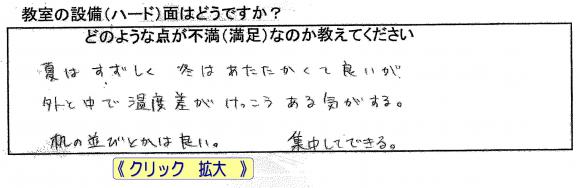 教室の設備（ハード）面はどうですか？
どのような点が不満（満足）なのか教えてください
夏は すずしく 冬は あたたかくて 良いが
外と中で 温度差が けっこう ある気がする。
机の並びとかは良い。 集中してできる。
《 クリック 拡大 》